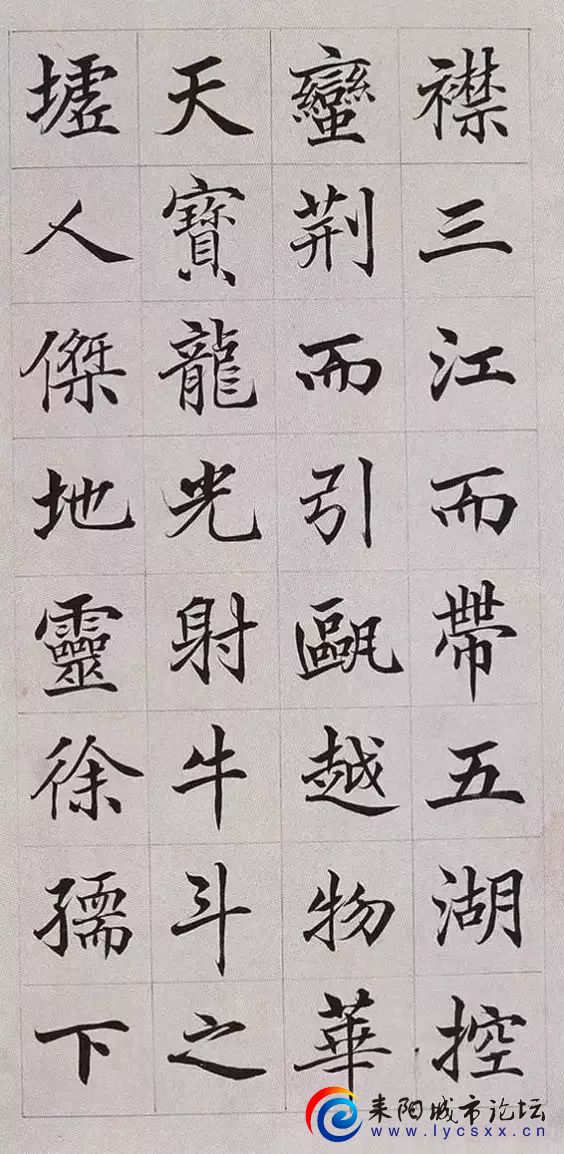 襟三江而帶五湖控
蠻荆而引甌越物華
天寶龍光射牛斗之
墟人傑地靈徐孺下
耒阳城市论坛
www.lycsxx.cn